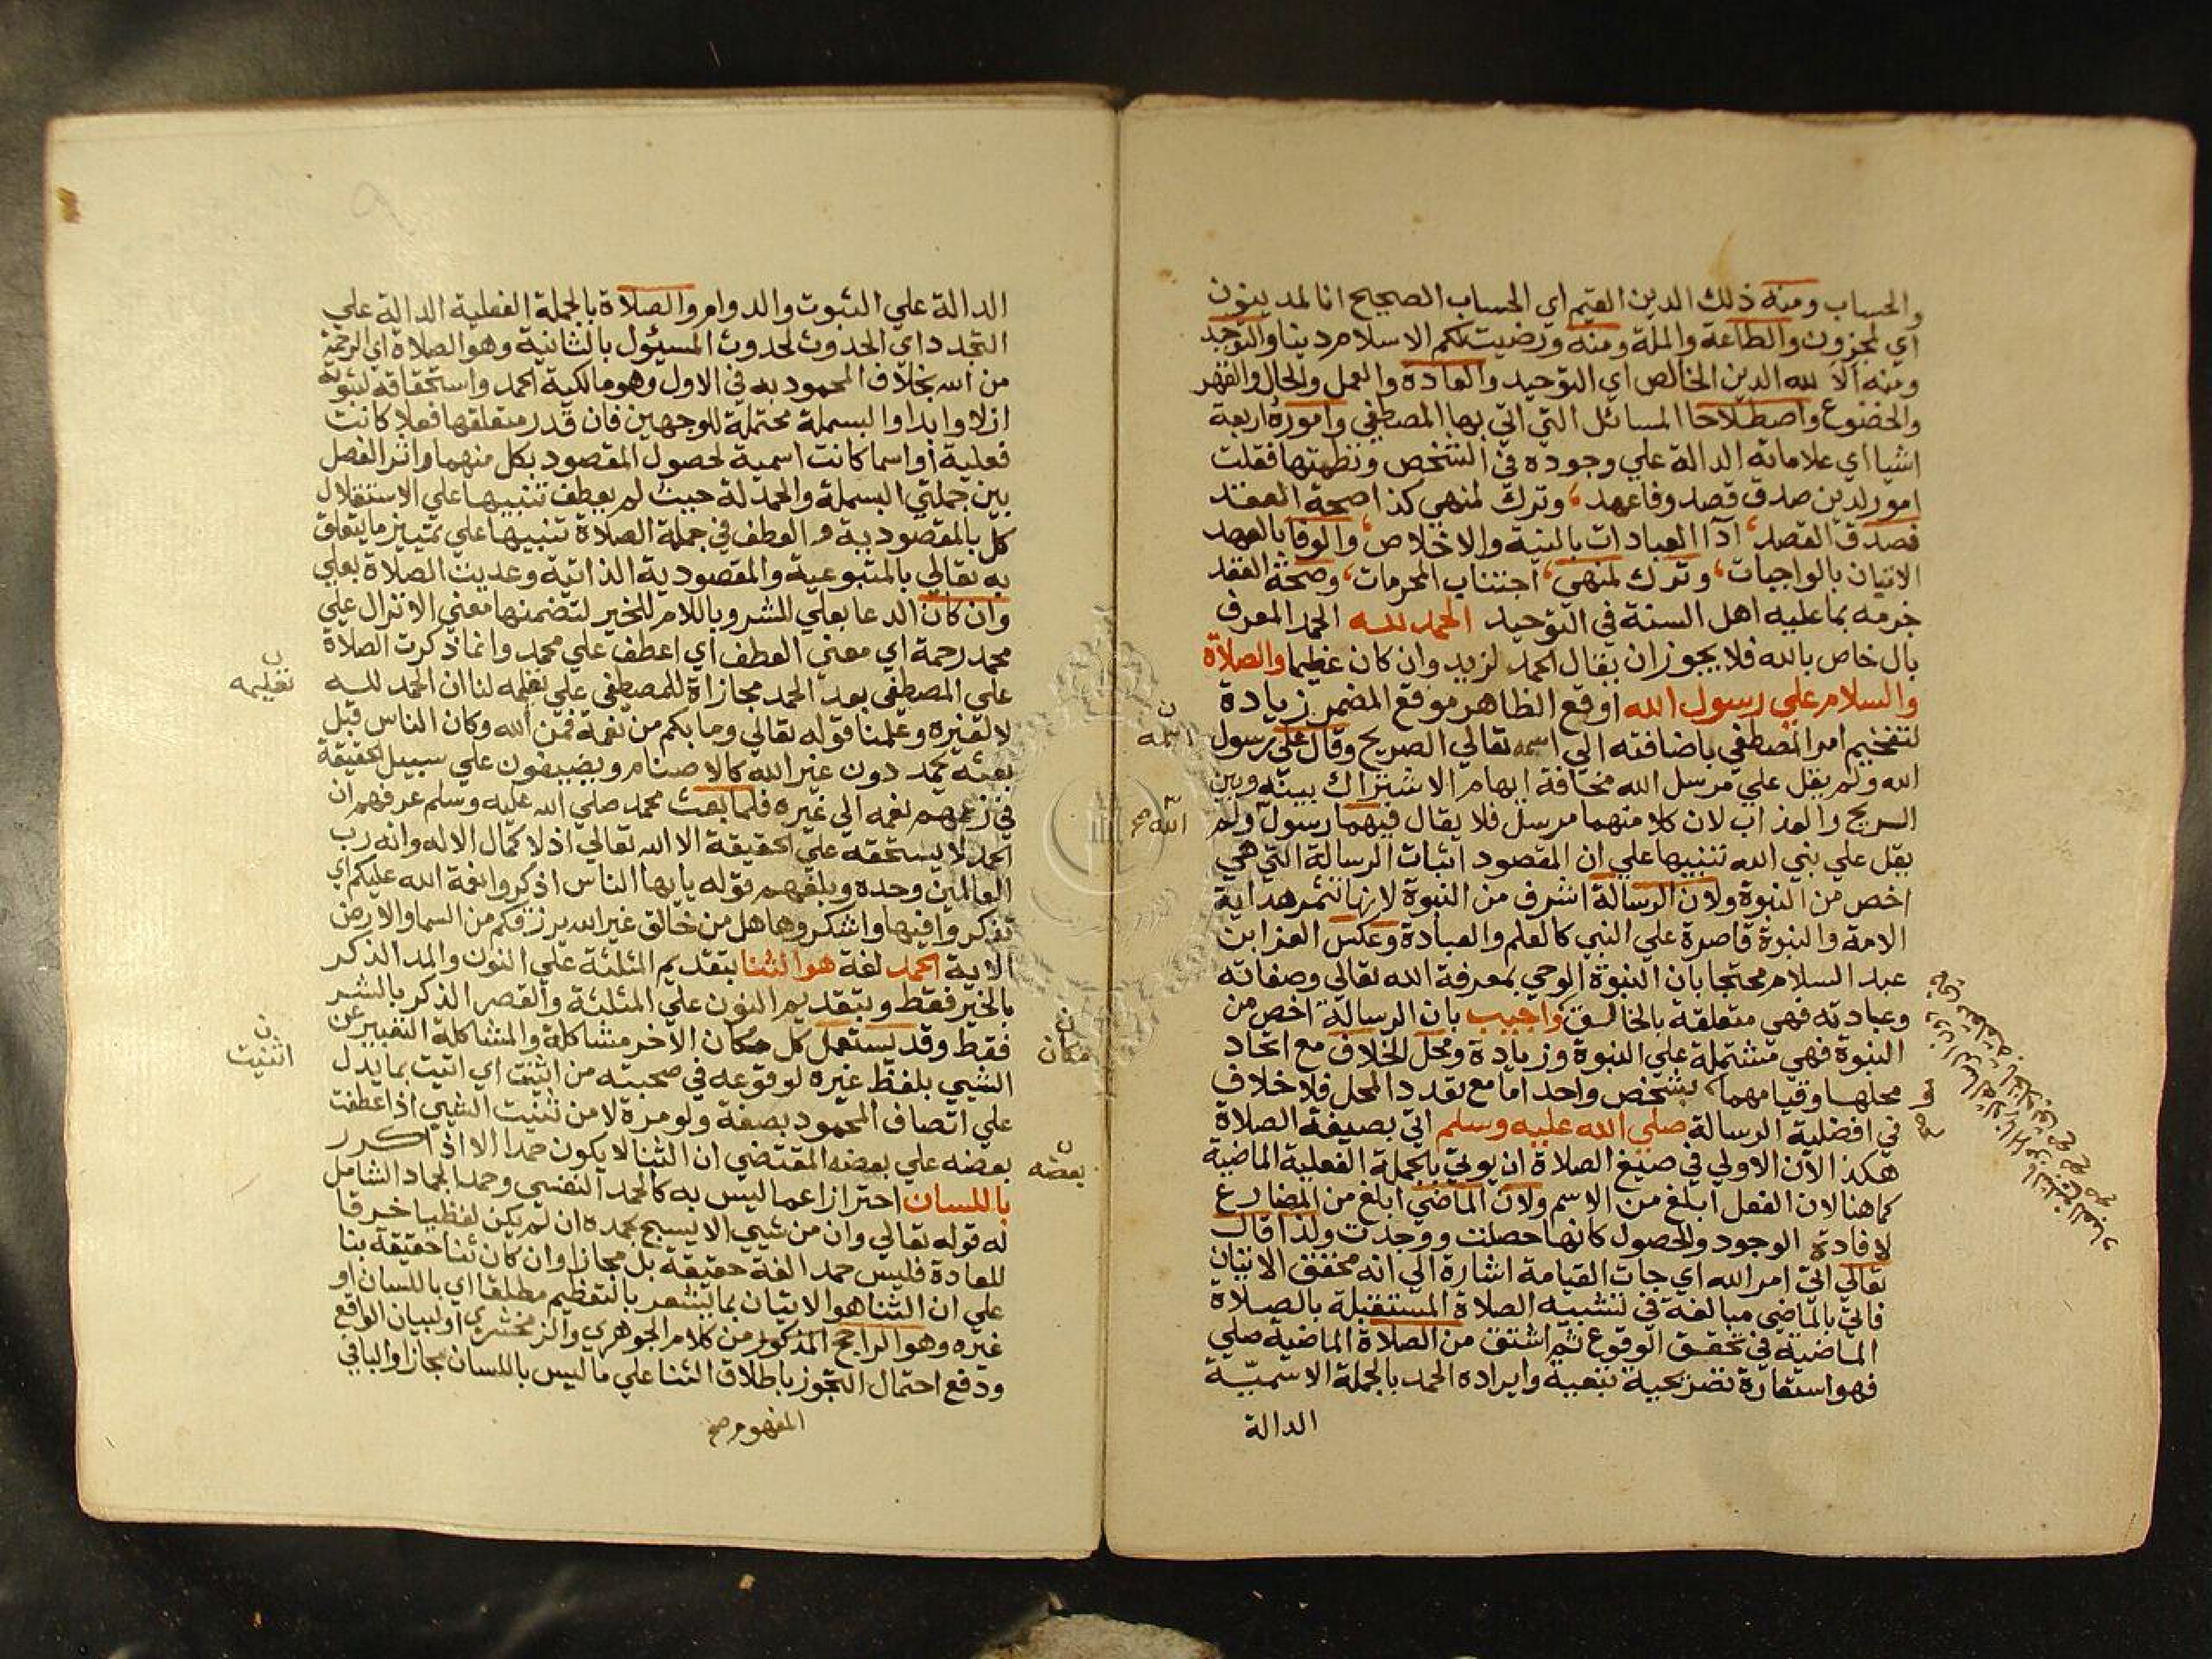 والحساب ومنه ذلك الدين القيم اي الحساب الصحيح انا لمدينون
اي لمجزون والطاعة والملة ومنه ورضيت لكم الاسلام دينا والتوحيد
ومنه ألا لله الدين الخالص اي التوحيد والعادة والعمل والحال والقهر
والخضوع واصطلاحا المسائل التي اتي بها المصطفي واموره اربعة
اشيا اي علاماته الدالة علي وجوده في الشخص ونظمتها فقلت
امور لدين صدق قصد وفا عهد، وترك لمنهي كذا صحة العقد
فصدق القصد، ادا العبادات بالنية والاخلاص، والوفا بالعهد
الاتيان بالواجبات، وترك لمنهي، اجتناب المحرمات، وصحة العقد
جزمه بما عليه اهل السنة في التوحيد الحمد لله الحمد المعرف
بال خاص بالله فلا يجوز ان يقال الحمد لزيد وان كان عظيما والصلاة
والسلام علي رسول الله اوقع الظاهر موقع المضمر زيادة
لتفخيم امر المصطفي باضافته الي اسمه تعالي الصريح وقال علي رسول
الله ولم يقل علي مرسل الله مخافة ايهام الاشتراك بينه وبين
الريح والعذاب لان كلا منهما مرسل فلا يقال فيهما رسول ولم
يقل علي نبي الله تنبيها علي ان المقصود اثبات الرسالة التي هي
اخص من النبوة ولان الرسالة اشرف من النبوة لانها تثمر هداية
الامة والنبوة قاصرة علي النبي كالعلم والعبادة وعكس العز ابن
عبد السلام محتجا بان النبوة الوحي بمعرفة الله تعالي وصفاته
وعبادته فهي متعلقة بالخالق واجيب بان الرسالة اخص من
النبوة فهي مشتملة علي النبوة وزيادة ومحل الخلاف مع اتحاد
محلها وقيامهما بشخص واحد اما مع تعدد المحل فلا خلاف
في افضلية الرسالة صلي الله عليه وسلم اتي بصيغة الصلاة
هكذا الان الاولي في صيغ الصلاة ان يوتي بالجملة الفعلية الماضية
كما هنا لان الفعل ابلغ من الاسم ولان الماضي ابلغ من المضارع
لافادة الوجود والحصول كانها حصلت ووجدت ولذا قال
تعالي اتي امر الله اي جات القيامة اشارة الي انه محقق الاتيان
فاتي بالماضي مبالغة في تشبيه الصلاة المستقبلة بالصلاة
الماضية في تحقق الوقوع ثم اشتق من الصلاة الماضية صلي
فهو استعارة تصريحية تبعية وايراده الحمد بالجملة الاسمية
الدالة
ن
اسمه
الله صح
الدالة علي الثبوت والدوام والصلاة بالجملة الفعلية الدالة علي
التجدد اي الحدوث لحدوث المسئول بالثانية وهو الصلاة اي الرحمة
من الله بخلاف المحمود به في الاول وهو مالكية الحمد واستحقاقه لثبوته
ازلا وابدا والبسملة محتملة للوجهين فان قدر متعلقها فعلا كانت
فعلية او اسما كانت اسمية لحصول المقصود بكل منهما واثر الفصل
بين جملتي البسملة والحمدلة حيث لم يعطف تنبيها علي الاستقلال
كل بالمقصودية والعطف في جملة الصلاة تنبيها علي تمييز ما يتعلق
به تعالي بالمتبوعية والمقصودية الذاتية وعديت الصلاة بعلي
وان كان الدعا بعلي للشر وباللام للخير لتضمنها معني الانزال علي
محمد رحمة اي معني العطف اي اعطف علي محمد وانما ذكرت الصلاة
علي المصطفي بعد الحمد مجازاة للمصطفي علي تعلمه لنا ان الحمد لله
لا لغيره وعلمنا قوله تعالي وما بكم من نعمة فمن الله وكان الناس قبل
بعثه يحمد دون غير الله كالاصنام ويضيفون علي سبيل الحقيقة
في زعمهم نعمه الي غيره فلما بعث محمد صلي الله عليه وسلم عرفهم ان
الحمد لا يستحقه علي الحقيقة الا الله تعالي اذ لا كمال الا له وانه رب
العالمين وحده وبلغهم قوله يايها الناس اذكروا نعمة الله عليكم اي
تفكروا فيها واشكروها هل من خالق غير الله يرزقكم من السما والارض
الاية الحمد لغة هو الثنا بتقديم المثلثة علي النون والمد الذكر
بالخير فقط وبتقديم النون علي المثلثة والقصر الذكر بالشر
فقط وقد يستعمل كل مكان الاخر مشاكلة والمشاكلة التعبير عن
الشيي بلفظ غيره لوقوعه في صحبته من اثنت اي اتيت بما يدل
علي اتصاف المحمود بصفة ولو مرة لا من ثنيت الشيي اذا عطفت
بعضه علي بعضه المقتضي ان الثنا لا يكون حمدا الا اذا كرر
باللسان احترازا عما ليس به كالحمد النفسي وحمد الجماد الشامل
له قوله تعالي وان من شيي الا يسبح بحمده ان لم يكن لفظيا خرقا
للعادة فليس حمدا لغة حقيقة بل مجازا وان كان ثنا حقيقة بنا
علي ان الثنا هو الاتيان بما يشعر بالتعظيم مطلقا اي باللسان او
غيره وهو الراجح المذكور من كلام الجوهري والزمخشري او لبيان الواقع
ودفع احتمال التجوز باطلاق الثنا علي ما ليس باللسان مجازا والباقي
المفهوم صح
ن
تعليمه
ن
اثنيت
ن
مكان
ن
بعضه